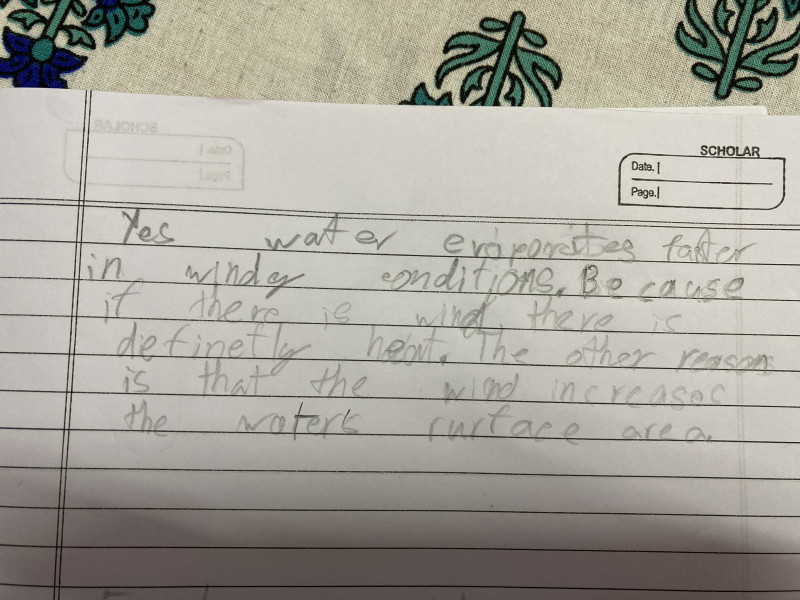 SCHOLAR
Date.
Page.
Yes water evaporates faster
in windy conditions. Because
if there is wind there is
definetly heat. The other reason
is that the wind increases
the waters surface area.